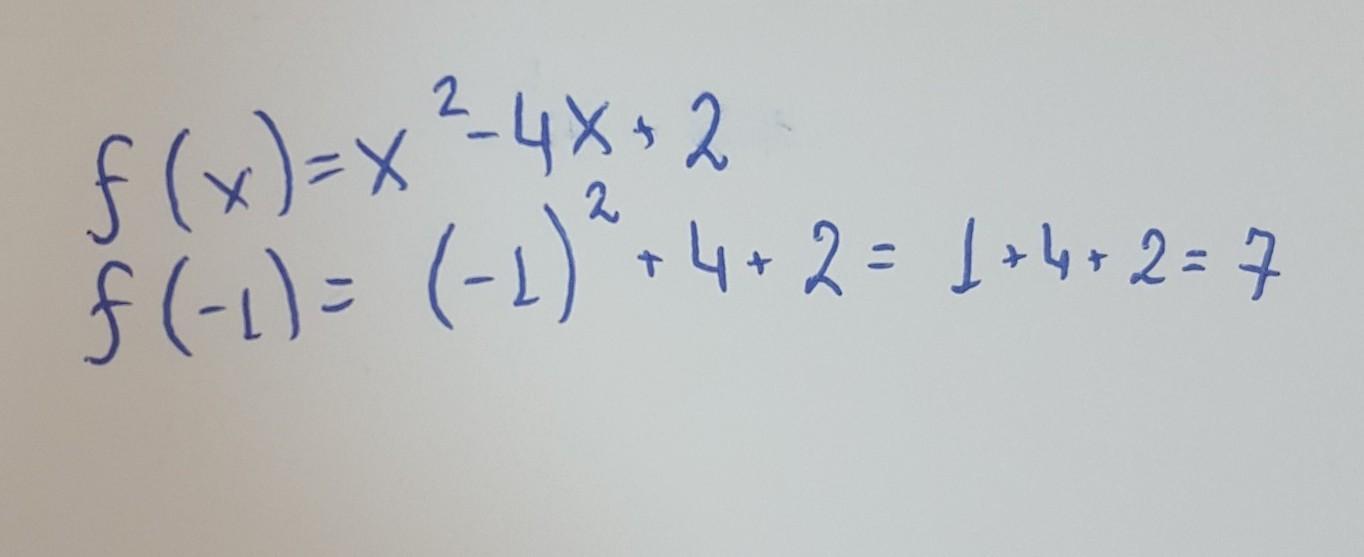 f(x)=x²-4x+2
f(-1)= (-1)²+4+2= 1+4+2=7